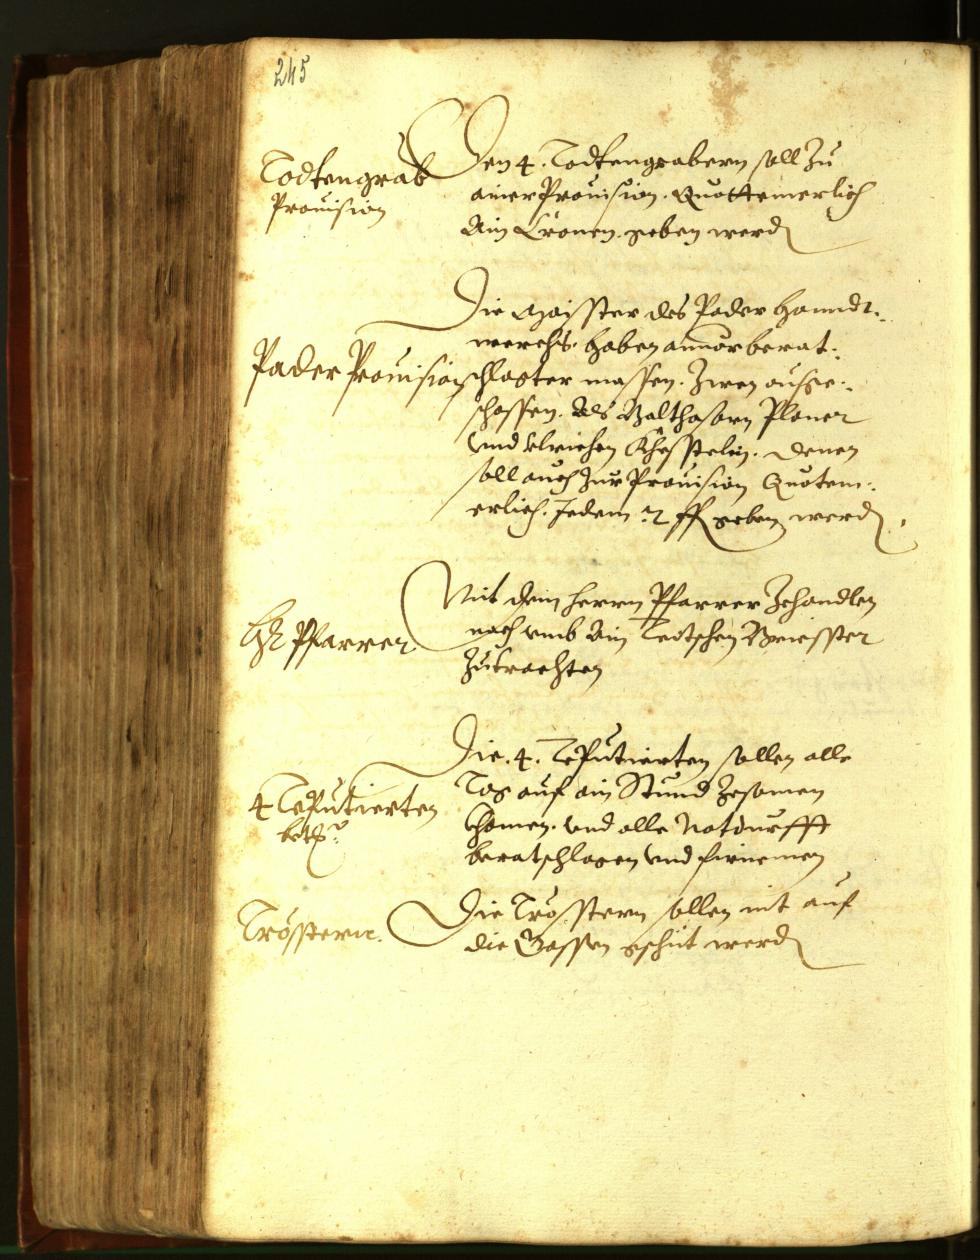 245
Todtengrab
Prouision
Den 4. Todtengrabern soll Zu
ainer Prouision. Quottemerlich
Ain Cronen. geben werd
Pader Prouision
Die Maisster des Pader Hanndt:
werchs. haben annorberat:
schlagter massen. Zwen ausge:
schossen. Als Balthasarn Planer
vnd Vlrichen. Denen
soll auch Zur Prouision Quotem:
erlich. Jedem 2 ff geben werd.
Hr Pfarrer
Mit dem herrn Pfarrer Zehandlen
noch vmb Ain Teutschen Briesster
Zutrachten
4 Teputierten
Die .4. Teputierten sollen alle
Tag auf ain Stund Zesamen
khomen. vnd alle Notdurfft
beratschlagen vnd firnemen
Trösterin.
Die Trösstern sollen nit auf
die Gassen gehüt werd